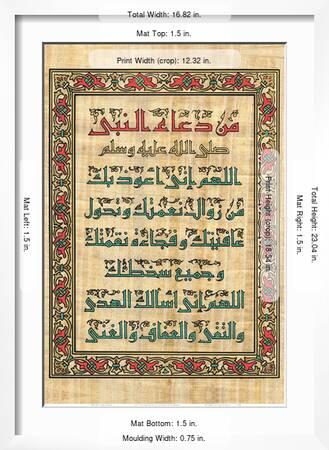 Total Width: 16.82 in.
Mat Top: 1.5 in.
Print Width (crop): 12.32 in.
من دعاء النبي
صلى الله عليه وسلم
اللهم إني أعوذ بك
من زوال نعمتك وتحول
عافيتك وفجاءة نقمتك
وجميع سخطك
اللهم إني أسألك الهدى
والتقى والعفاف والغنى
Mat Left: 1.5 in.
Print Height (crop): 18.54 in.
Mat Right: 1.5 in.
Total Height: 23.04 in.
Mat Bottom: 1.5 in.
Moulding Width: 0.75 in.